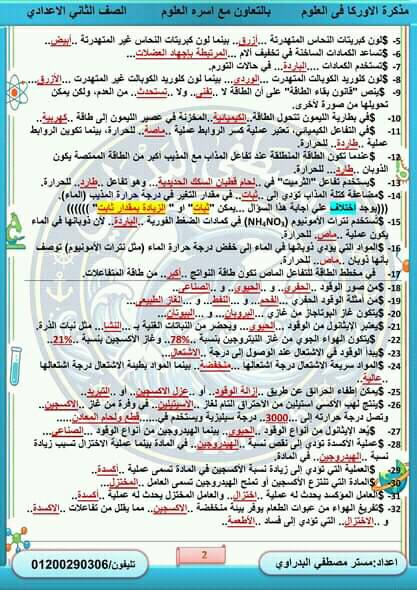 مذكرة الاوركا فى العلوم بالتعاون مع اسره العلوم الصف الثاني الاعدادي
5- $لون كبريتات النحاس المتهدرتة ...أزرق.. بينما لون كبريتات النحاس غير المتهدرتة ..أبيض..
6- $تساعد الكمادات الساخنة في تخفيف آلام ...المرتبطة بإجهاد العضلات...
7- $تستخدم الكمادات ....الباردة... في حالات التورم.
8- $لون كلوريد الكوبالت المتهدرت ...الوردي.. بينما لون كلوريد الكوبالت غير المتهدرت ...الأزرق...
9- $ينص "قانون بقاء الطاقة" على أن الطاقة لا ..تفنى.. ولا ..تستحدث.. من العدم، ولكن يمكن
تحويلها من صورة لأخرى.
10- $في بطارية الليمون تتحول الطاقة..الكيميائية..المخزنة في عصير الليمون إلى طاقة ..كهربية..
11- $في التفاعل الكيميائي، تعتبر عملية كسر الروابط عملية ..ماصة.. للحرارة، بينما تكوين الروابط
عملية ..طاردة... للحرارة.
12- $عندما تكون الطاقة المنطلقة عند تفاعل المذاب مع المذيب أكبر من الطاقة الممتصة يكون
الذوبان ..طارد... للحرارة.
13- $يستخدم تفاعل "الثرميت" في ..لحام قطبان السكك الحديدية... وهو تفاعل ..طارد.. للحرارة.
14- $مضاعفة كتلة المذاب تؤدي إلى ..ثبات.. في مقدار التغير في درجة حرارة المذيب (الماء).
(((يوجد اختلاف على اجابة هذا السؤال ...يمكن "ثبات" او "الزيادة بمقدار ثابت" ))))))
15- $تستخدم نترات الأمونيوم (NH₄NO₃) في كمادات الضغط الفورية ..الباردة.. لأن ذوبانها في الماء
يكون عملية ..ماص.. للحرارة.
16- $المواد التي يؤدي ذوبانها في الماء إلى خفض درجة حرارة الماء (مثل نترات الأمونيوم) توصف
بأنها ذات ذوبان ..ماص.. للحرارة.
17- في مخطط الطاقة للتفاعل الماص تكون طاقة النواتج ..أكبر.. من طاقة المتفاعلات.
18- $من صور الوقود ..الحفري.. و ..الحيوي.. و ..الصناعي..
19- $من أمثلة الوقود الحفري ..الفحم.. و ..النفط.. و ...الغاز الطبيعي...
20- $يتكون غاز البوتاجاز من غازي ...البروبان.. و ...البيوتان...
21- $يعتبر الإيثانول من الوقود ...الحيوي.. ويحضر من النباتات الغنية بـ ...النشا.. مثل نبات الذرة.
22- $يتكون الهواء الجوي من غاز النيتروجين بنسبة ..78%.. وغاز الأكسجين بنسبة ..21%..
23- $يبدأ الوقود في الاشتعال عند الوصول إلى درجة ..الاشتعال..
24- $المواد سريعة الاشتعال درجة اشتعالها ...منخفضة.. بينما المواد بطيئة الاشتعال درجة اشتعالها
..عالية..
25- $يمكن إطفاء الحرائق عن طريق ..إزالة الوقود.. أو ..عزل الأكسجين.. أو ..التبريد..
26- $ينتج لهب الأكسي أستيلين من الاحتراق التام لغاز ..الأستيلين.. في وفرة من غاز ..الأكسجين..
وتصل درجة حرارته إلى ..3000.. درجة سيليزية ويستخدم في.....قطع ولحام المعادن....
27- $يُعد الإيثانول من أنواع الوقود ..الحيوي.. بينما الهيدروجين من أنواع الوقود ..الصناعي...
28- $عملية الأكسدة تؤدي إلى نقص نسبة ..الهيدروجين.. في المادة بينما عملية الاختزال تسبب زيادة
نسبة ..الهيدروجين.. في المادة.
29- $العملية التي تؤدي إلى زيادة نسبة الأكسجين في المادة تسمى عملية ..أكسدة..
30- $المادة التي تنتزع الأكسجين أو تمنح الهيدروجين تسمى العامل ..المختزل...
31- $العامل المؤكسد يحدث له عملية ..اختزال.. والعامل المختزل يحدث له عملية ..أكسدة..
32- $تفريغ الهواء من عبوات الطعام يوفر بيئة منخفضة ..الأكسجين... مما يقلل من تفاعلات ..الأكسدة..
و ..الاختزال.. التي تؤدي إلى فساد ..الأطعمة..
اعداد:مستر مصطفي البدراوي
2
تليفون/01200290306